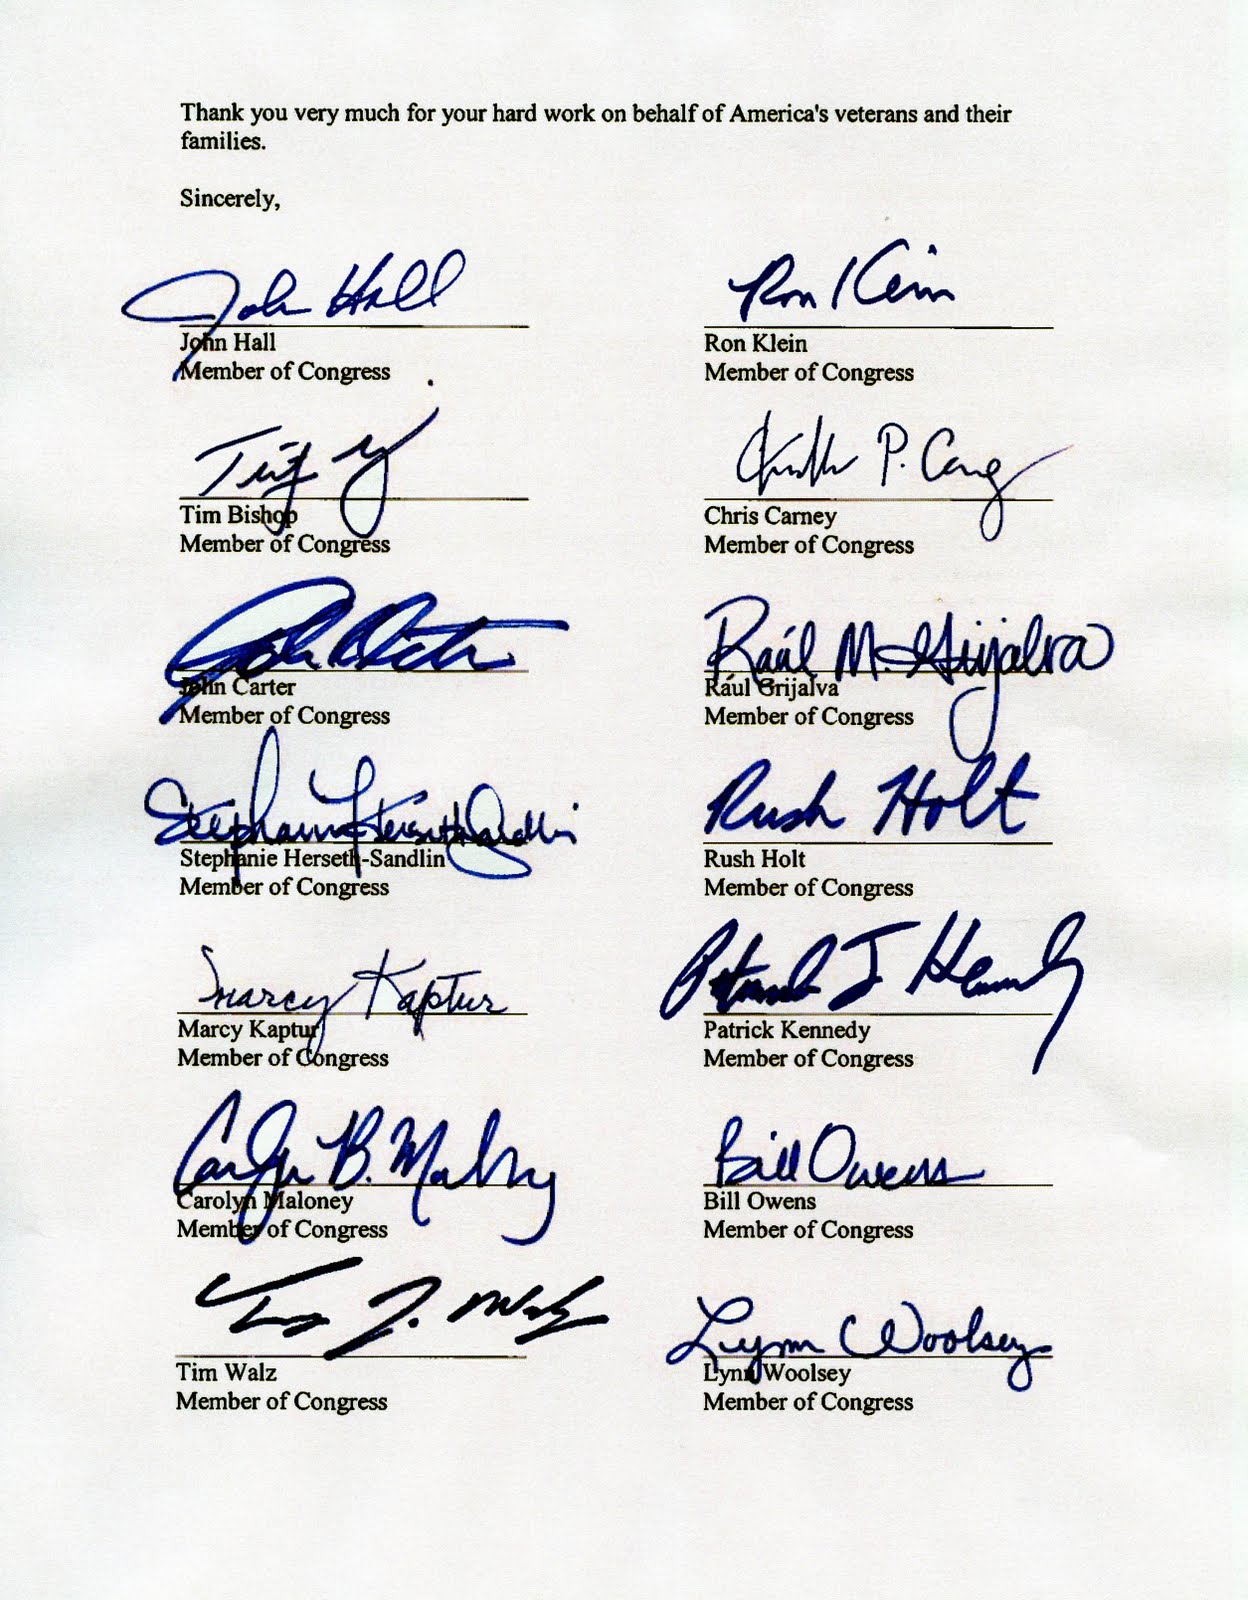 Thank you very much for your hard work on behalf of America's veterans and their
families.
Sincerely,
John Hall
John Hall
Member of Congress
Ron Klein
Ron Klein
Member of Congress
Tim Bishop
Member of Congress
P. Carney
Chris Carney
Member of Congress
John Carter
John Carter
Member of Congress
Raúl M. Grijalva
Rául Grijalva
Member of Congress
Stephanie Herseth Sandlin
Stephanie Herseth-Sandlin
Member of Congress
Rush Holt
Rush Holt
Member of Congress
Marcy Kaptur
Marcy Kaptur
Member of Congress
Patrick J. Kennedy
Patrick Kennedy
Member of Congress
Carolyn B. Maloney
Carolyn Maloney
Member of Congress
Bill Owens
Bill Owens
Member of Congress
Tim J. Walz
Tim Walz
Member of Congress
Lynn Woolsey
Lynn Woolsey
Member of Congress